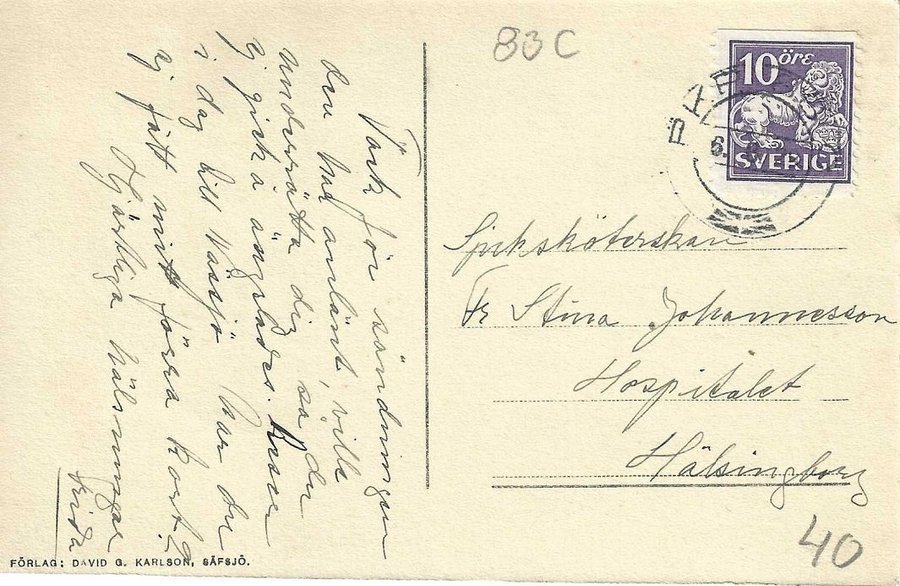 83 C
10 ÖRE
SVERIGE
6.
Tack för sändningen
den har anlänt, ville
underrätta dig, så du
ej gick o ängslades. Reser
i dag till Vassjö har du
ej fått mitt förra kort?
Hjärtliga hälsningar
Frida
Sjuksköterskan
Fr Stina Johannesson
Hospitalet
Hälsingborg
40
FÖRLAG: DAVID G. KARLSON, SÄFSJÖ.